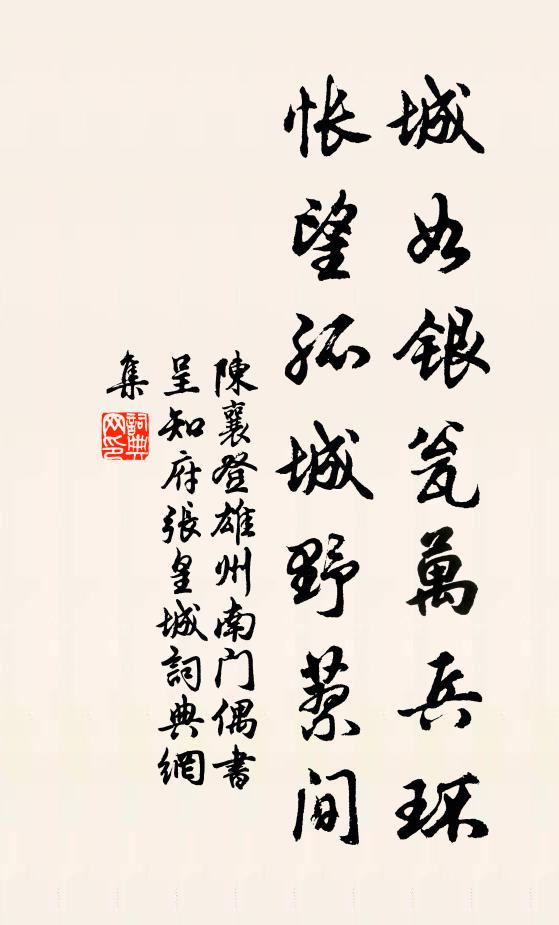 城如银瓮萬兵环
怅望孤城野蔡间
陳襄登雄州南门偶書
呈知府張皇城詞典網
集
詞典
网印